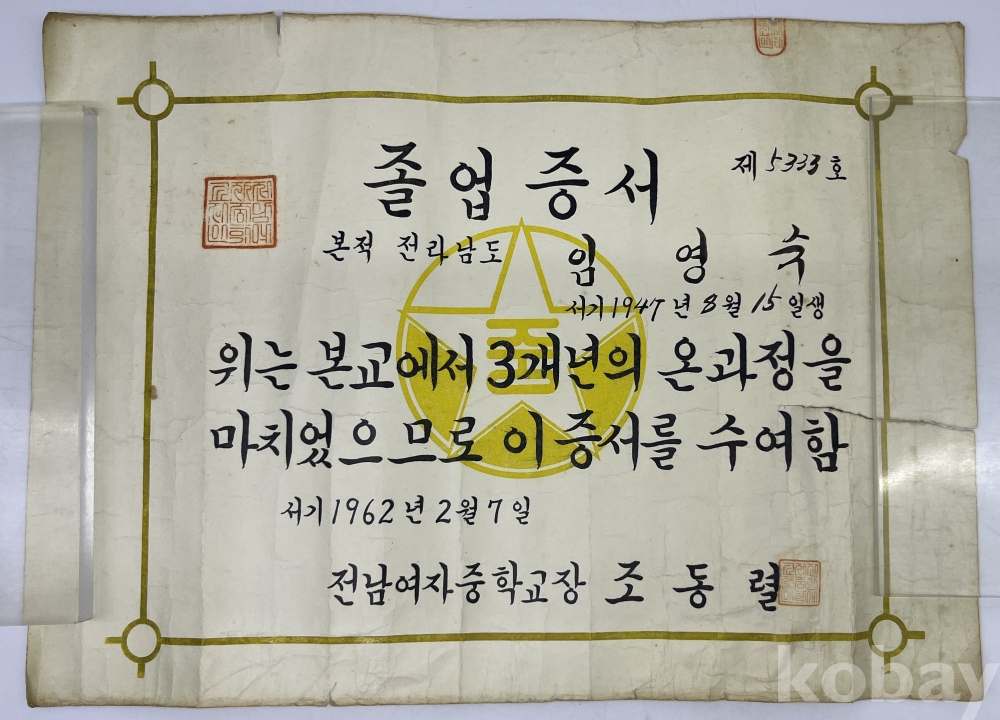 졸업증서
제 5333 호
본적 전라남도
임 영 숙
서기 1947 년 8 월 15 일생
위는 본교에서 3개년의 온과정을
마치었으므로 이 증서를 수여함
서기 1962 년 2 월 7 일
전남여자중학교장 조 동 렬
중
kobay